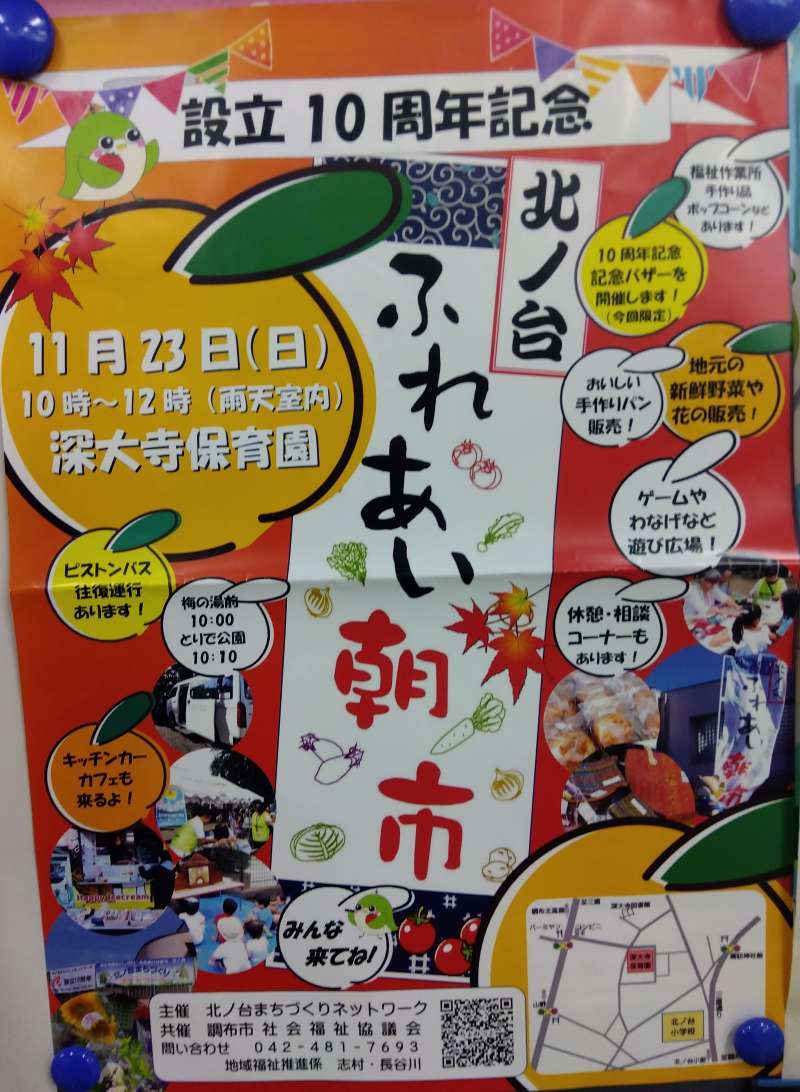 設立10周年記念
北ノ台
ふれあい
朝市
11月23日(日)
10時~12時(雨天室内)
深大寺保育園
福祉作業所
手作り品
ポップコーンなど
あります!
10周年記念
記念バザーを
開催します!
(今回限定)
地元の
新鮮野菜や
花の販売!
おいしい
手作りパン
販売!
ゲームや
わなげなど
遊び広場!
休憩・相談
コーナーも
あります!
ピストンバス
往復運行
あります!
梅の湯前
10:00
とりで公園
10:10
キッチンカー
カフェも
来るよ!
みんな
来てね!
主催 北ノ台まちづくりネットワーク
共催 調布市社会福祉協議会
問い合わせ 042-481-7693
地域福祉推進係 志村・長谷川
調布北高校
至三鷹
深大寺図書館
バーミヤン
コンビニ
深大寺
保育園
北ノ台
小学校
ふれあい
朝市